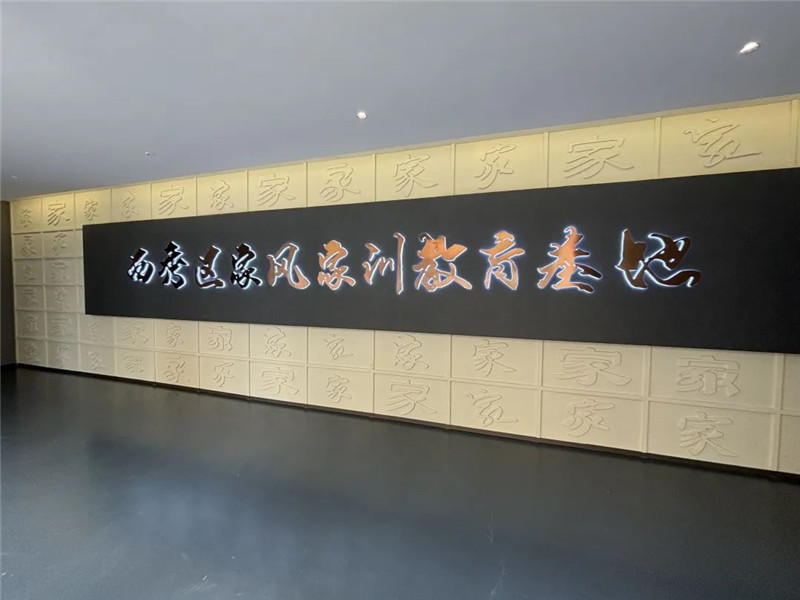 西秀区家风家训教育基地